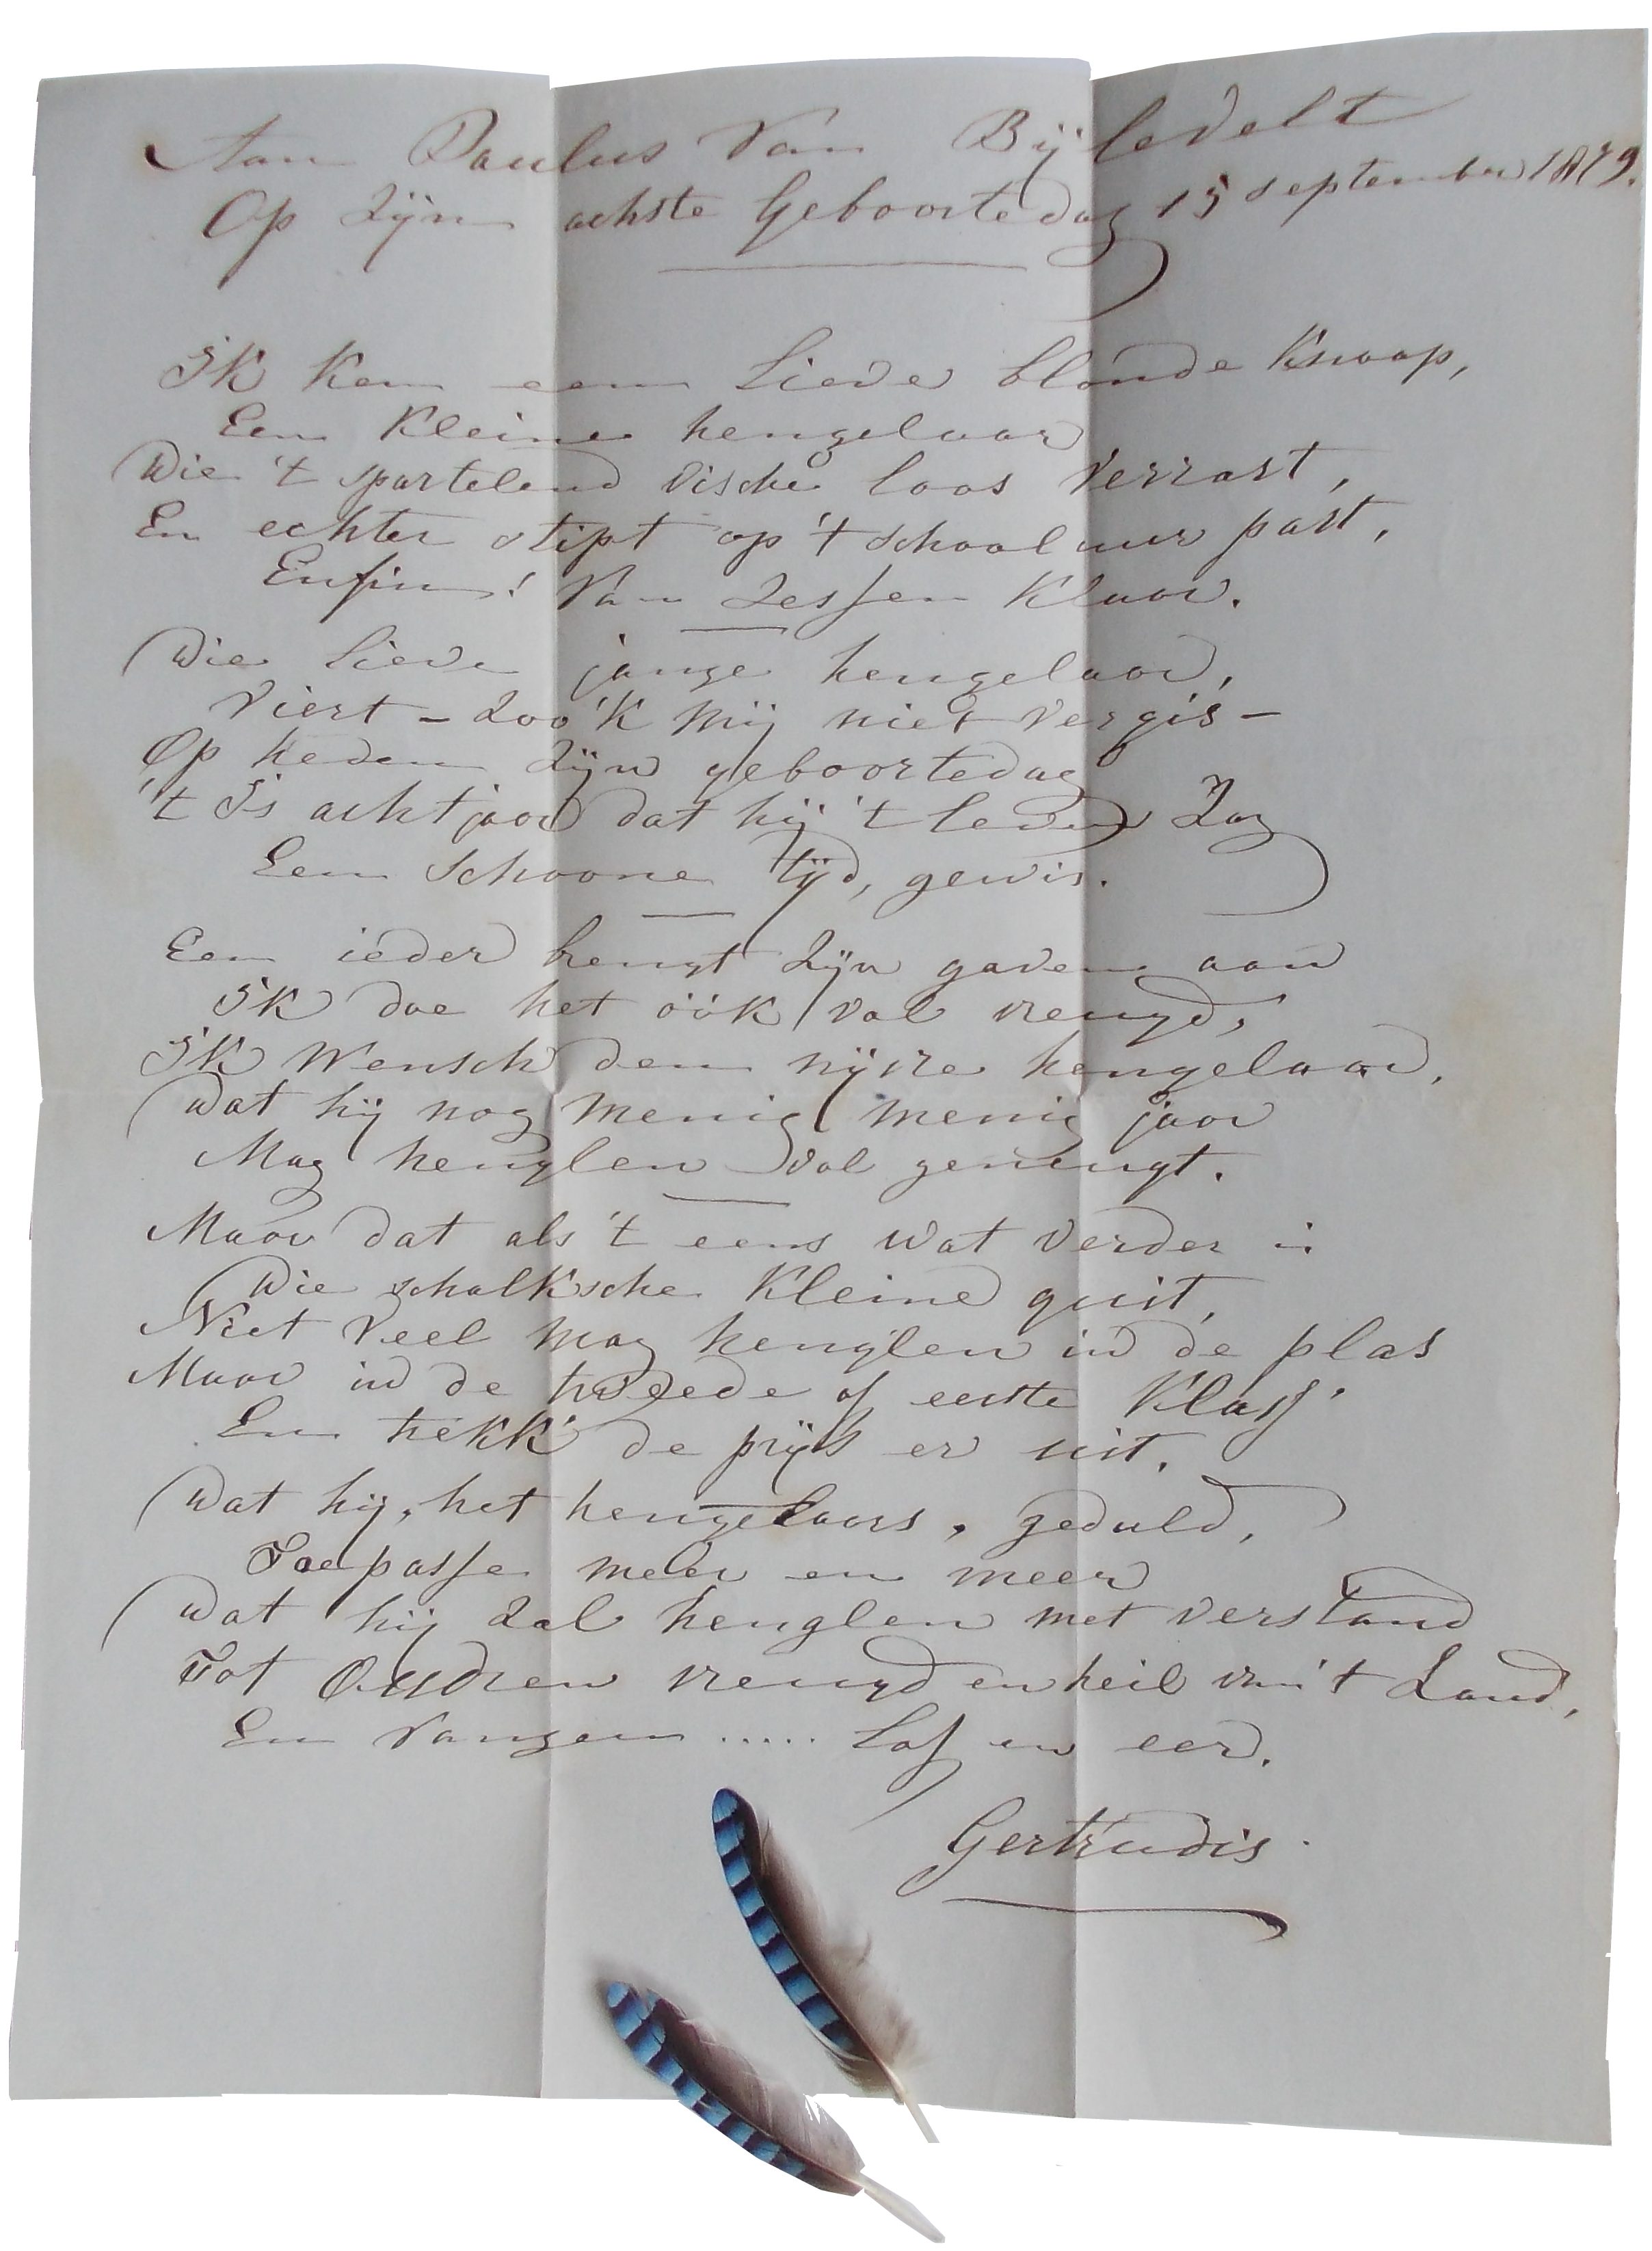 Aan Paulus Van Bijlevelt
Op Zijn achste Geboortedag 15 september 1879.
Ik Ken een Lieve blonde Knaap,
Een Kleine hengelaar
Die 't spartelend vische loos Verrast,
En echter stipt op 't schooluur past,
Enfin! Van Zessen Klaar.
Die Lieve jonge hengelaar,
Viert - Zoo 'K Mij niet Vergis -
Op heden Zijn geboortedag
't Is acht jaar dat hij 't leven Zag
Een Schoone tijd, gewis.
Een ieder brengt Zijn gaven aan
Ik doe het óók vol vreugd,
Ik Wensch den nijvre hengelaar,
Dat hij nog Menig menig jaar
Mag henglen vol geneugt.
Maar dat als 't eens wat Verder is
Die schalksche Kleine guit,
Niet Veel mag henglen in de plas
Maar in de tweede of eerste Klass'
En trekk' de prijs er uit.
Dat hij, het hengelaars, geduld,
Toepasse meer en meer
Dat hij Zal henglen met verstand
Tot Oudren vreugd en heil van 't Land,
En Vangen ..... Lof en eer.
Gertrudis.